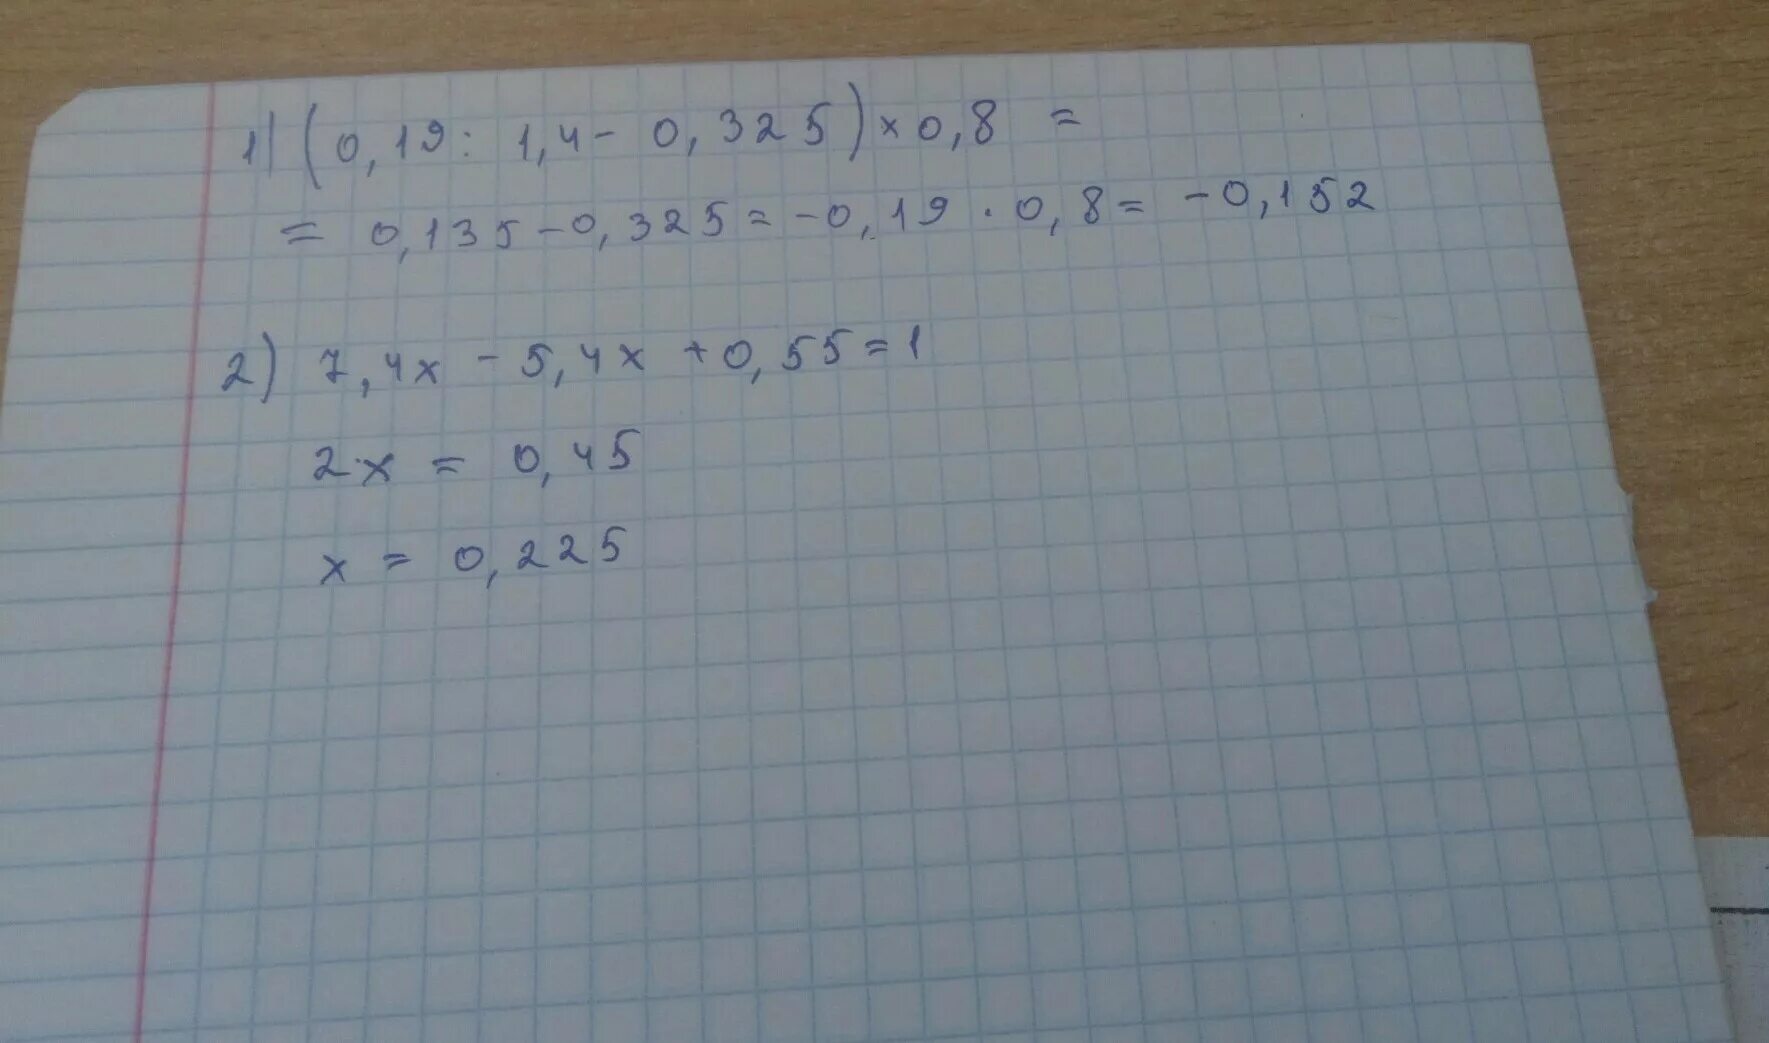 1) (0,19 : 1,4 - 0,325) × 0,8 =
= 0,135 - 0,325 = -0,19 · 0,8 = -0,152
2) 7,4x - 5,4x + 0,55 = 1
2x = 0,45
x = 0,225